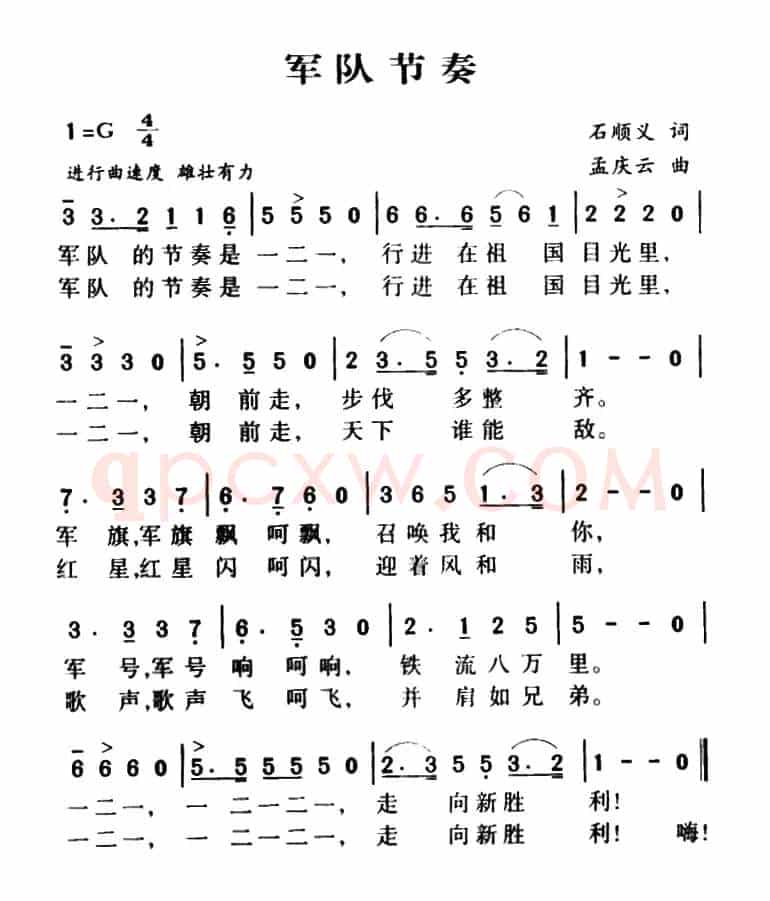 军队节奏
1=G 4/4
石顺义 词
进行曲速度 雄壮有力
孟庆云 曲
3 3·2 1 1 6 | 5 5 5 0 | 6 6·6 5 6 1 | 2 2 2 0 |
军队 的节奏是 一二一, 行进 在祖 国 目光里,
军队 的节奏是 一二一, 行进 在祖 国 目光里,
3 3 3 0 | 5· 5 5 0 | 2 3·5 5 3·2 | 1 - - 0 |
一二一, 朝 前走, 步伐 多整 齐。
一二一, 朝 前走, 天下 谁能 敌。
qpcxw.com
7· 3 3 7 | 6· 7 6 0 | 3 6 5 1·3 | 2 - - 0 |
军 旗,军旗 飘 呵飘, 召唤我和 你,
红 星,红星 闪 呵闪, 迎着风和 雨,
3· 3 3 7 | 6· 5 3 0 | 2· 1 2 5 | 5 - - 0 |
军 号,军号 响 呵响, 铁 流八万 里。
歌 声,歌声 飞 呵飞, 并 肩如兄 弟。
6 6 6 0 | 5·5 5 5 5 0 | 2·3 5 5 3·2 | 1 - - 0 ‖
一二一, 一 二一二一, 走 向新胜 利!
一二一, 一 二一二一, 走 向新胜 利! 嗨!